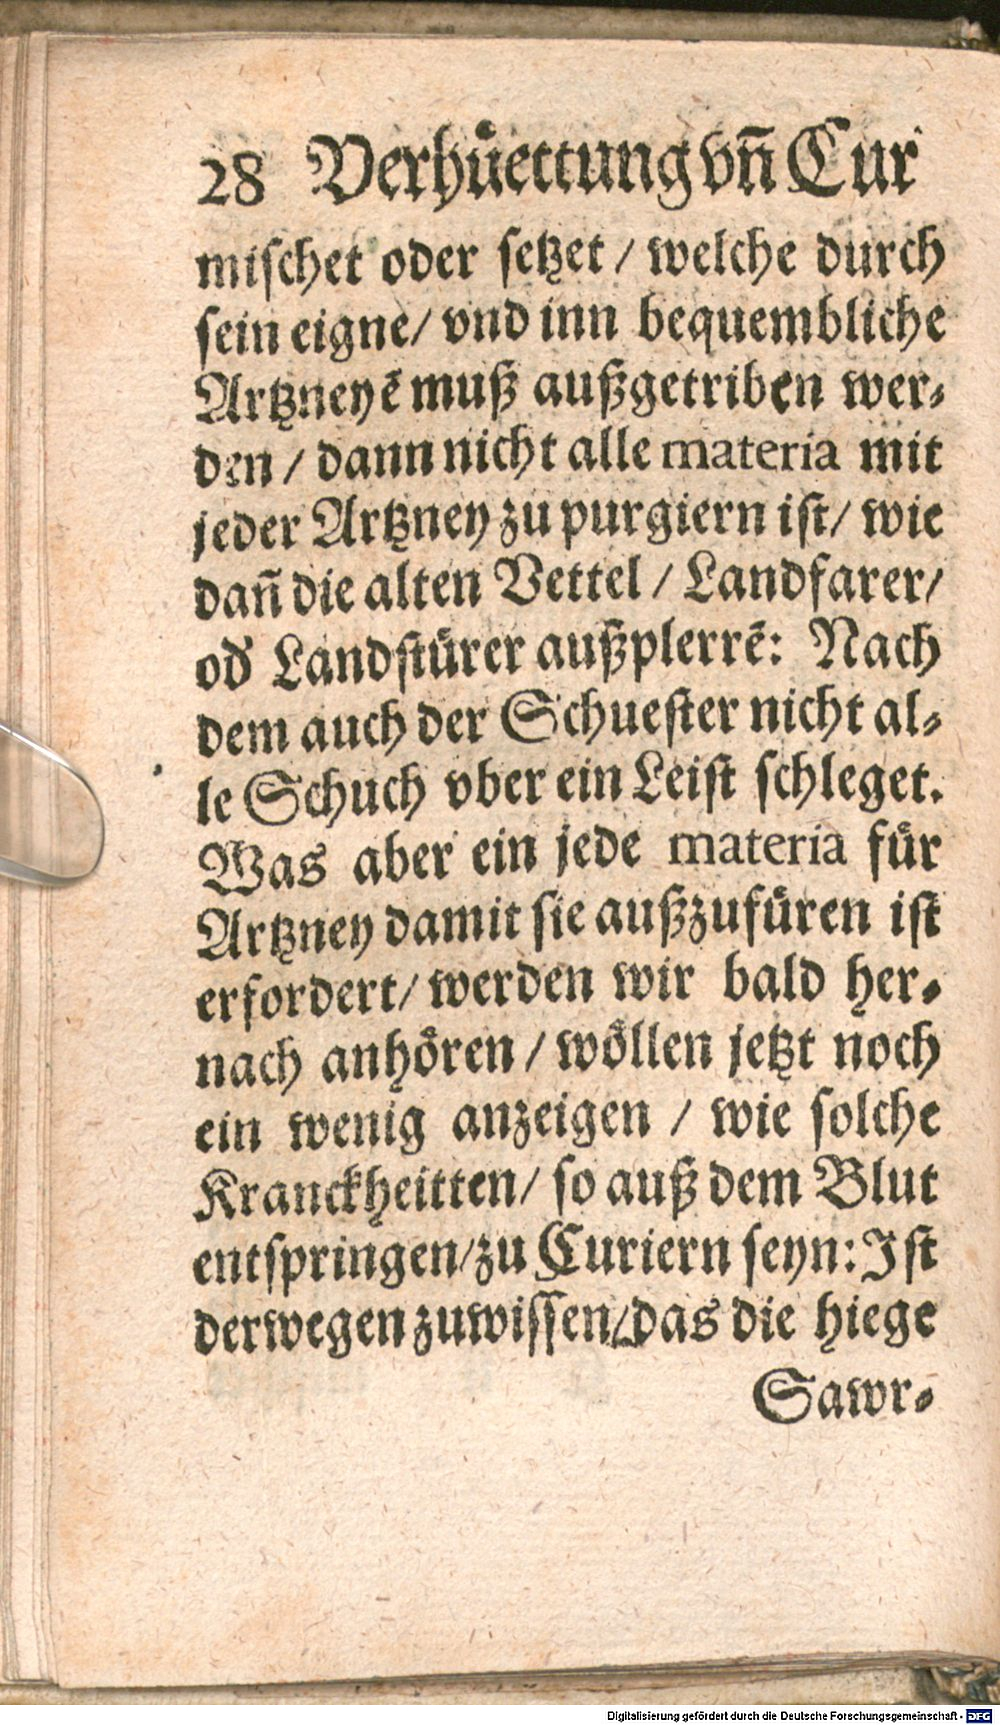 28 Verhuͤettung vn̄ Cur
mischet oder setzet / welche durch
sein eigne/ vnd inn bequembliche
Artzneyē muß außgetriben wer⸗
den / dann nicht alle materia mit
jeder Artzney zu purgiern ist/ wie
dañ die alten Vettel / Landfarer/
od' Landstürer außplerrē: Nach
dem auch der Schuester nicht al⸗
le Schuch vber ein Leist schleget.
Was aber ein jede materia fuͤr
Artzney damit sie außzufuͤren ist
erfordert/ werden wir bald her⸗
nach anhoͤren / woͤllen jetzt noch
ein wenig anzeigen / wie solche
Kranckheitten/ so auß dem Blut
entspringen/zu Curiern seyn: Ist
derwegen zuwissen/das die hiege
Sawr⸗
Digitalisierung gefördert durch die Deutsche Forschungsgemeinschaft - DFG